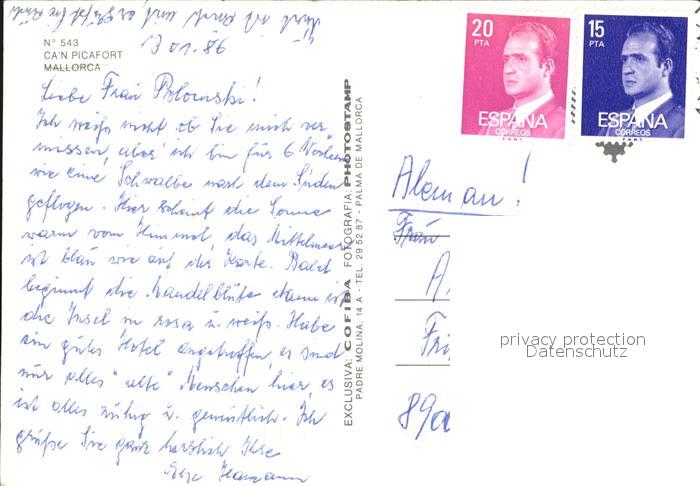 N° 543
CA'N PICAFORT
MALLORCA
13.01.86
Liebe Frau Polowski!
Ich weiß nicht ob Sie mich ver
missen, aber ich bin für 6 Wochen
wie eine Schwalbe nach dem Süden
geflogen. Hier scheint die Sonne
warm vom Himmel, das Mittelmeer
ist blau wie auf der Karte. Bald
beginnt die Mandelblüte dann ist
die Insel in rosa u. weiß. Habe
ein gutes Hotel angetroffen, es sind
nur alles "alte" Menschen hier, es
ist alles ruhig u. gemütlich. Ich
grüße Sie ganz herzlich Ihre
Else
EXCLUSIVA: COFIBA FOTOGRAFIA: PHOTOSTAMP
PADRE MOLINA, 14 A - TEL. 29 52 87 - PALMA DE MALLORCA
20
PTA
ESPAÑA
CORREOS
F.N.M.T.
15
PTA
ESPAÑA
CORREOS
F.N.M.T.
Aleman!
Frau
A.
Fri
privacy protection
Datenschutz
89